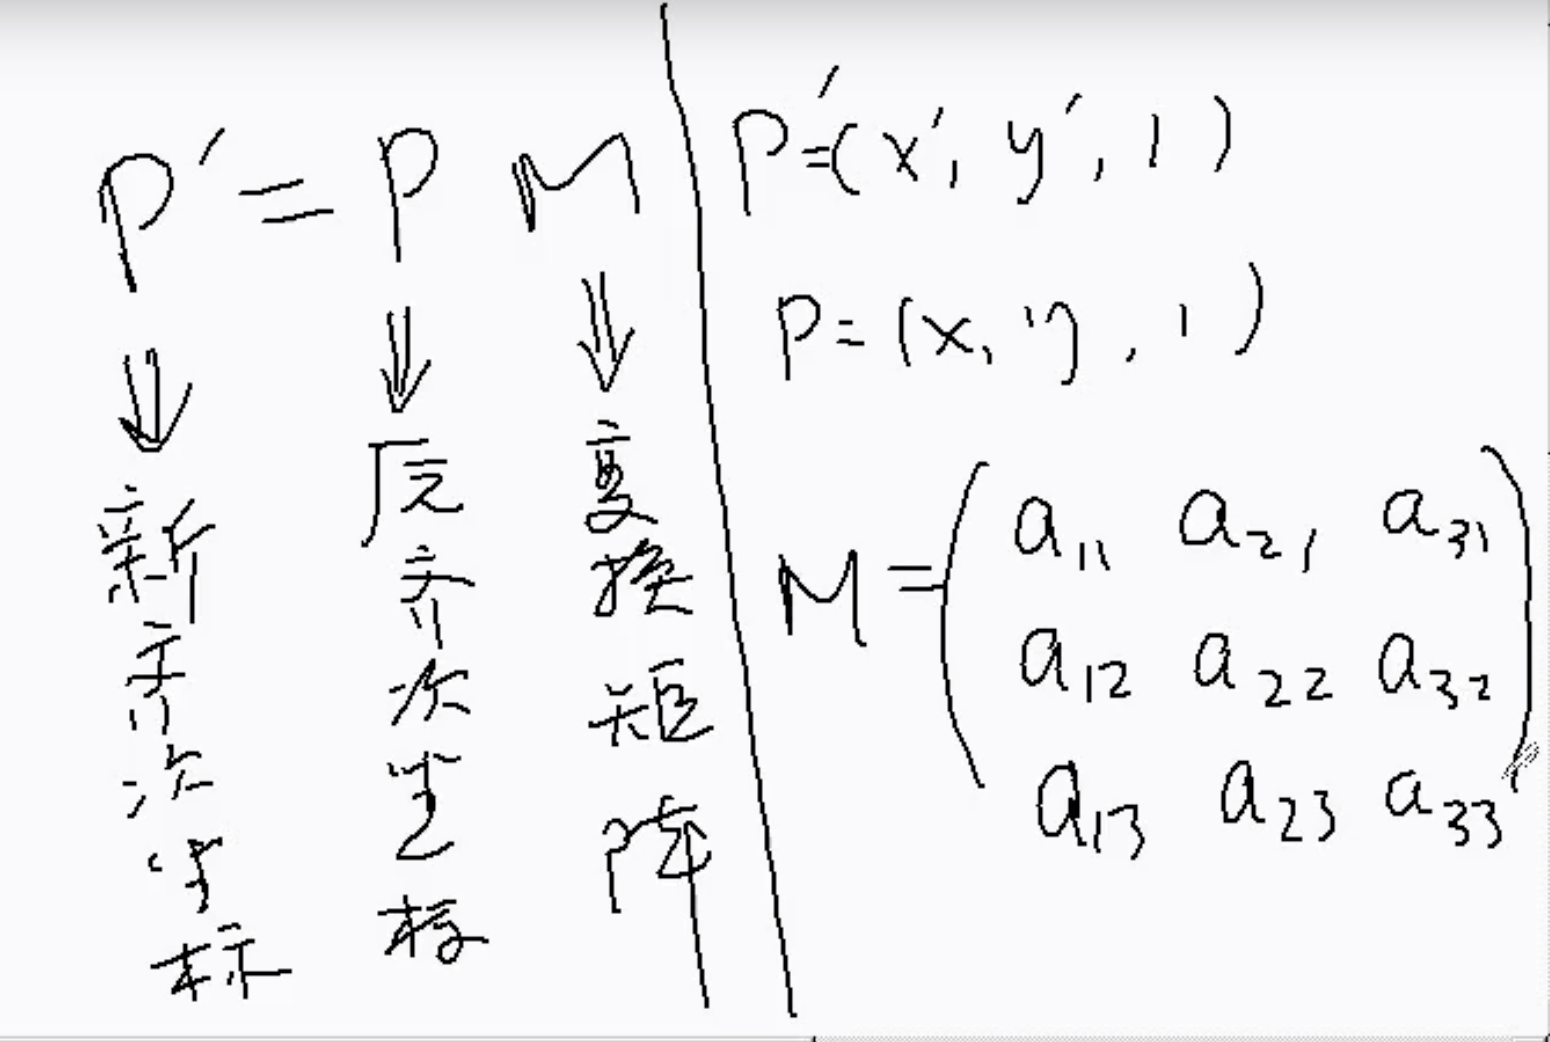 P′=PM
新齐次坐标
原齐次坐标
变换矩阵
P′=(x′, y′, 1)
P=(x, y, 1)
M=(a11 a21 a31
a12 a22 a32
a13 a23 a33)